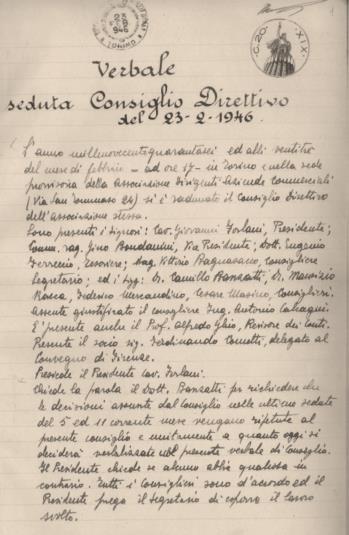 Verbale
seduta Consiglio Direttivo
del 23-2-1946.
L'anno millenovecentoquarantasei ed alli ventitre
del mese di febbraio - ad ore 17 - in Torino e nella sede
provvisoria della Associazione Dirigenti Aziende Commerciali
(Via San Tommaso 24) si è radunato il Consiglio Direttivo
dell'associazione stessa.
Sono presenti i signori: Cav. Giovanni Forlani, Presidente;
Comm. rag. Gino Bondonini, Vice Presidente; Dott. Eugenio
Ferreccio, Tesoriere; Rag. Vittorio Bagnasacco, Consigliere
Segretario; ed i sigg: Dr. Camillo Banzatti, Dr. Maurizio
Rosca, Federico Mercandino, Cesare Masino, Consiglieri.
Assente giustificato il consigliere Ing. Antonio
E' presente anche il Prof. Alfredo Ghio, Revisore dei Conti.
Presente il socio sig. Ferdinando Cometti, delegato al
Convegno di Firenze.
Presiede il Presidente Cav. Forlani.
Chiede la parola il Dott. Banzatti per richiedere che
le decisioni assunte dal Consiglio nelle ultime sedute
del 5 ed 11 corrente mese vengano ripetute al
presente consiglio e unitamente a quanto oggi si
deciderà verbalizzate nel presente verbale di Consiglio.
Il Presidente chiede se alcuno abbia qualcosa in
contrario. Tutti i Consiglieri sono d'accordo ed il
Presidente prega il Segretario di esporre il lavoro
svolto.